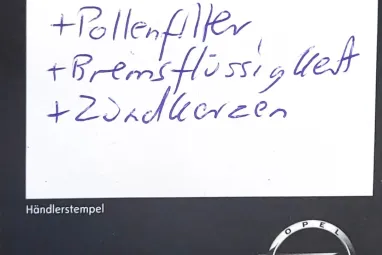 +Pollenfilter
+Bremsflüssigkeit
+Zündkerzen
Händlerstempel
OPEL